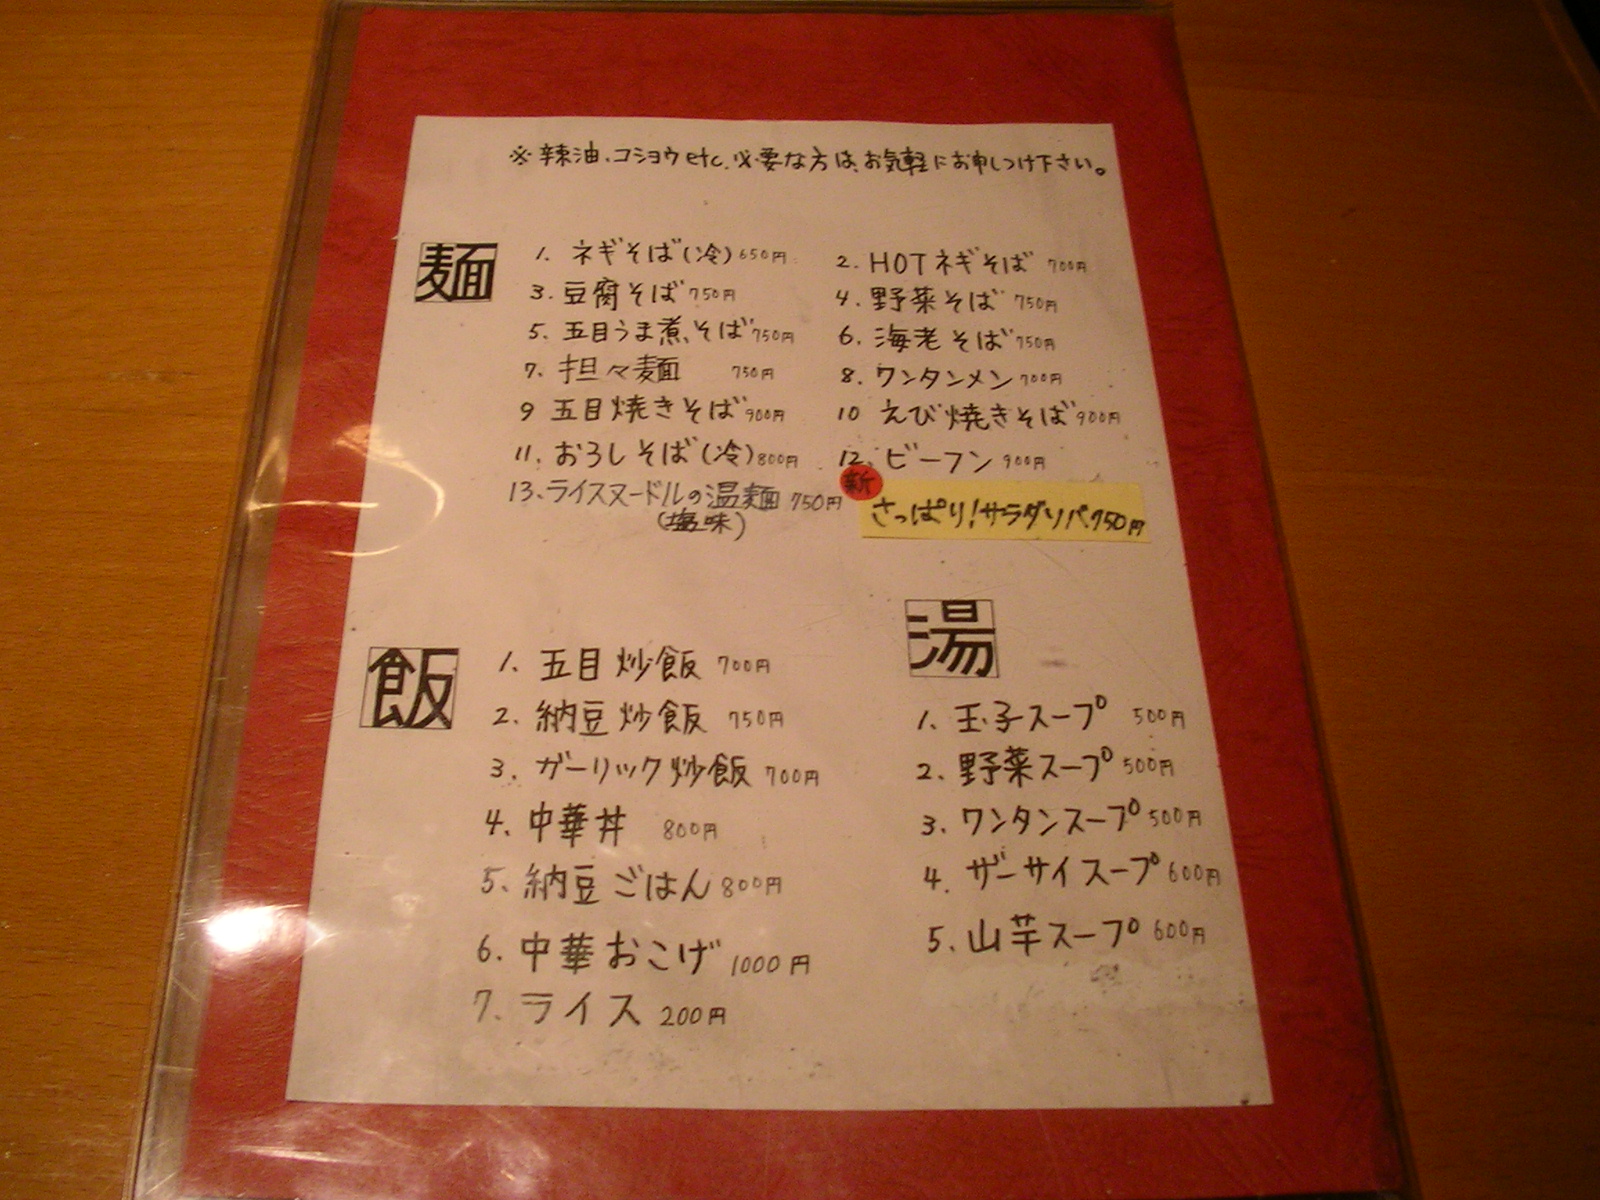 ※辣油、コショウetc.必要な方は、お気軽にお申しつけ下さい。
麺
1. ネギそば(冷) 650円
2. HOTネギそば 700円
3. 豆腐そば 750円
4. 野菜そば 750円
5. 五目うま煮そば 750円
6. 海老そば 750円
7. 担々麺 750円
8. ワンタンメン 700円
9 五目焼きそば 900円
10 えび焼きそば 900円
11. おろしそば(冷) 800円
12. ビーフン 900円
13. ライスヌードルの温麺 750円
(塩味)
新
さっぱり!サラダソバ 750円
飯
1. 五目炒飯 700円
2. 納豆炒飯 750円
3. ガーリック炒飯 700円
4. 中華丼 800円
5. 納豆ごはん 800円
6. 中華おこげ 1000円
7. ライス 200円
湯
1. 玉子スープ 500円
2. 野菜スープ 500円
3. ワンタンスープ 500円
4. ザーサイスープ 600円
5. 山芋スープ 600円